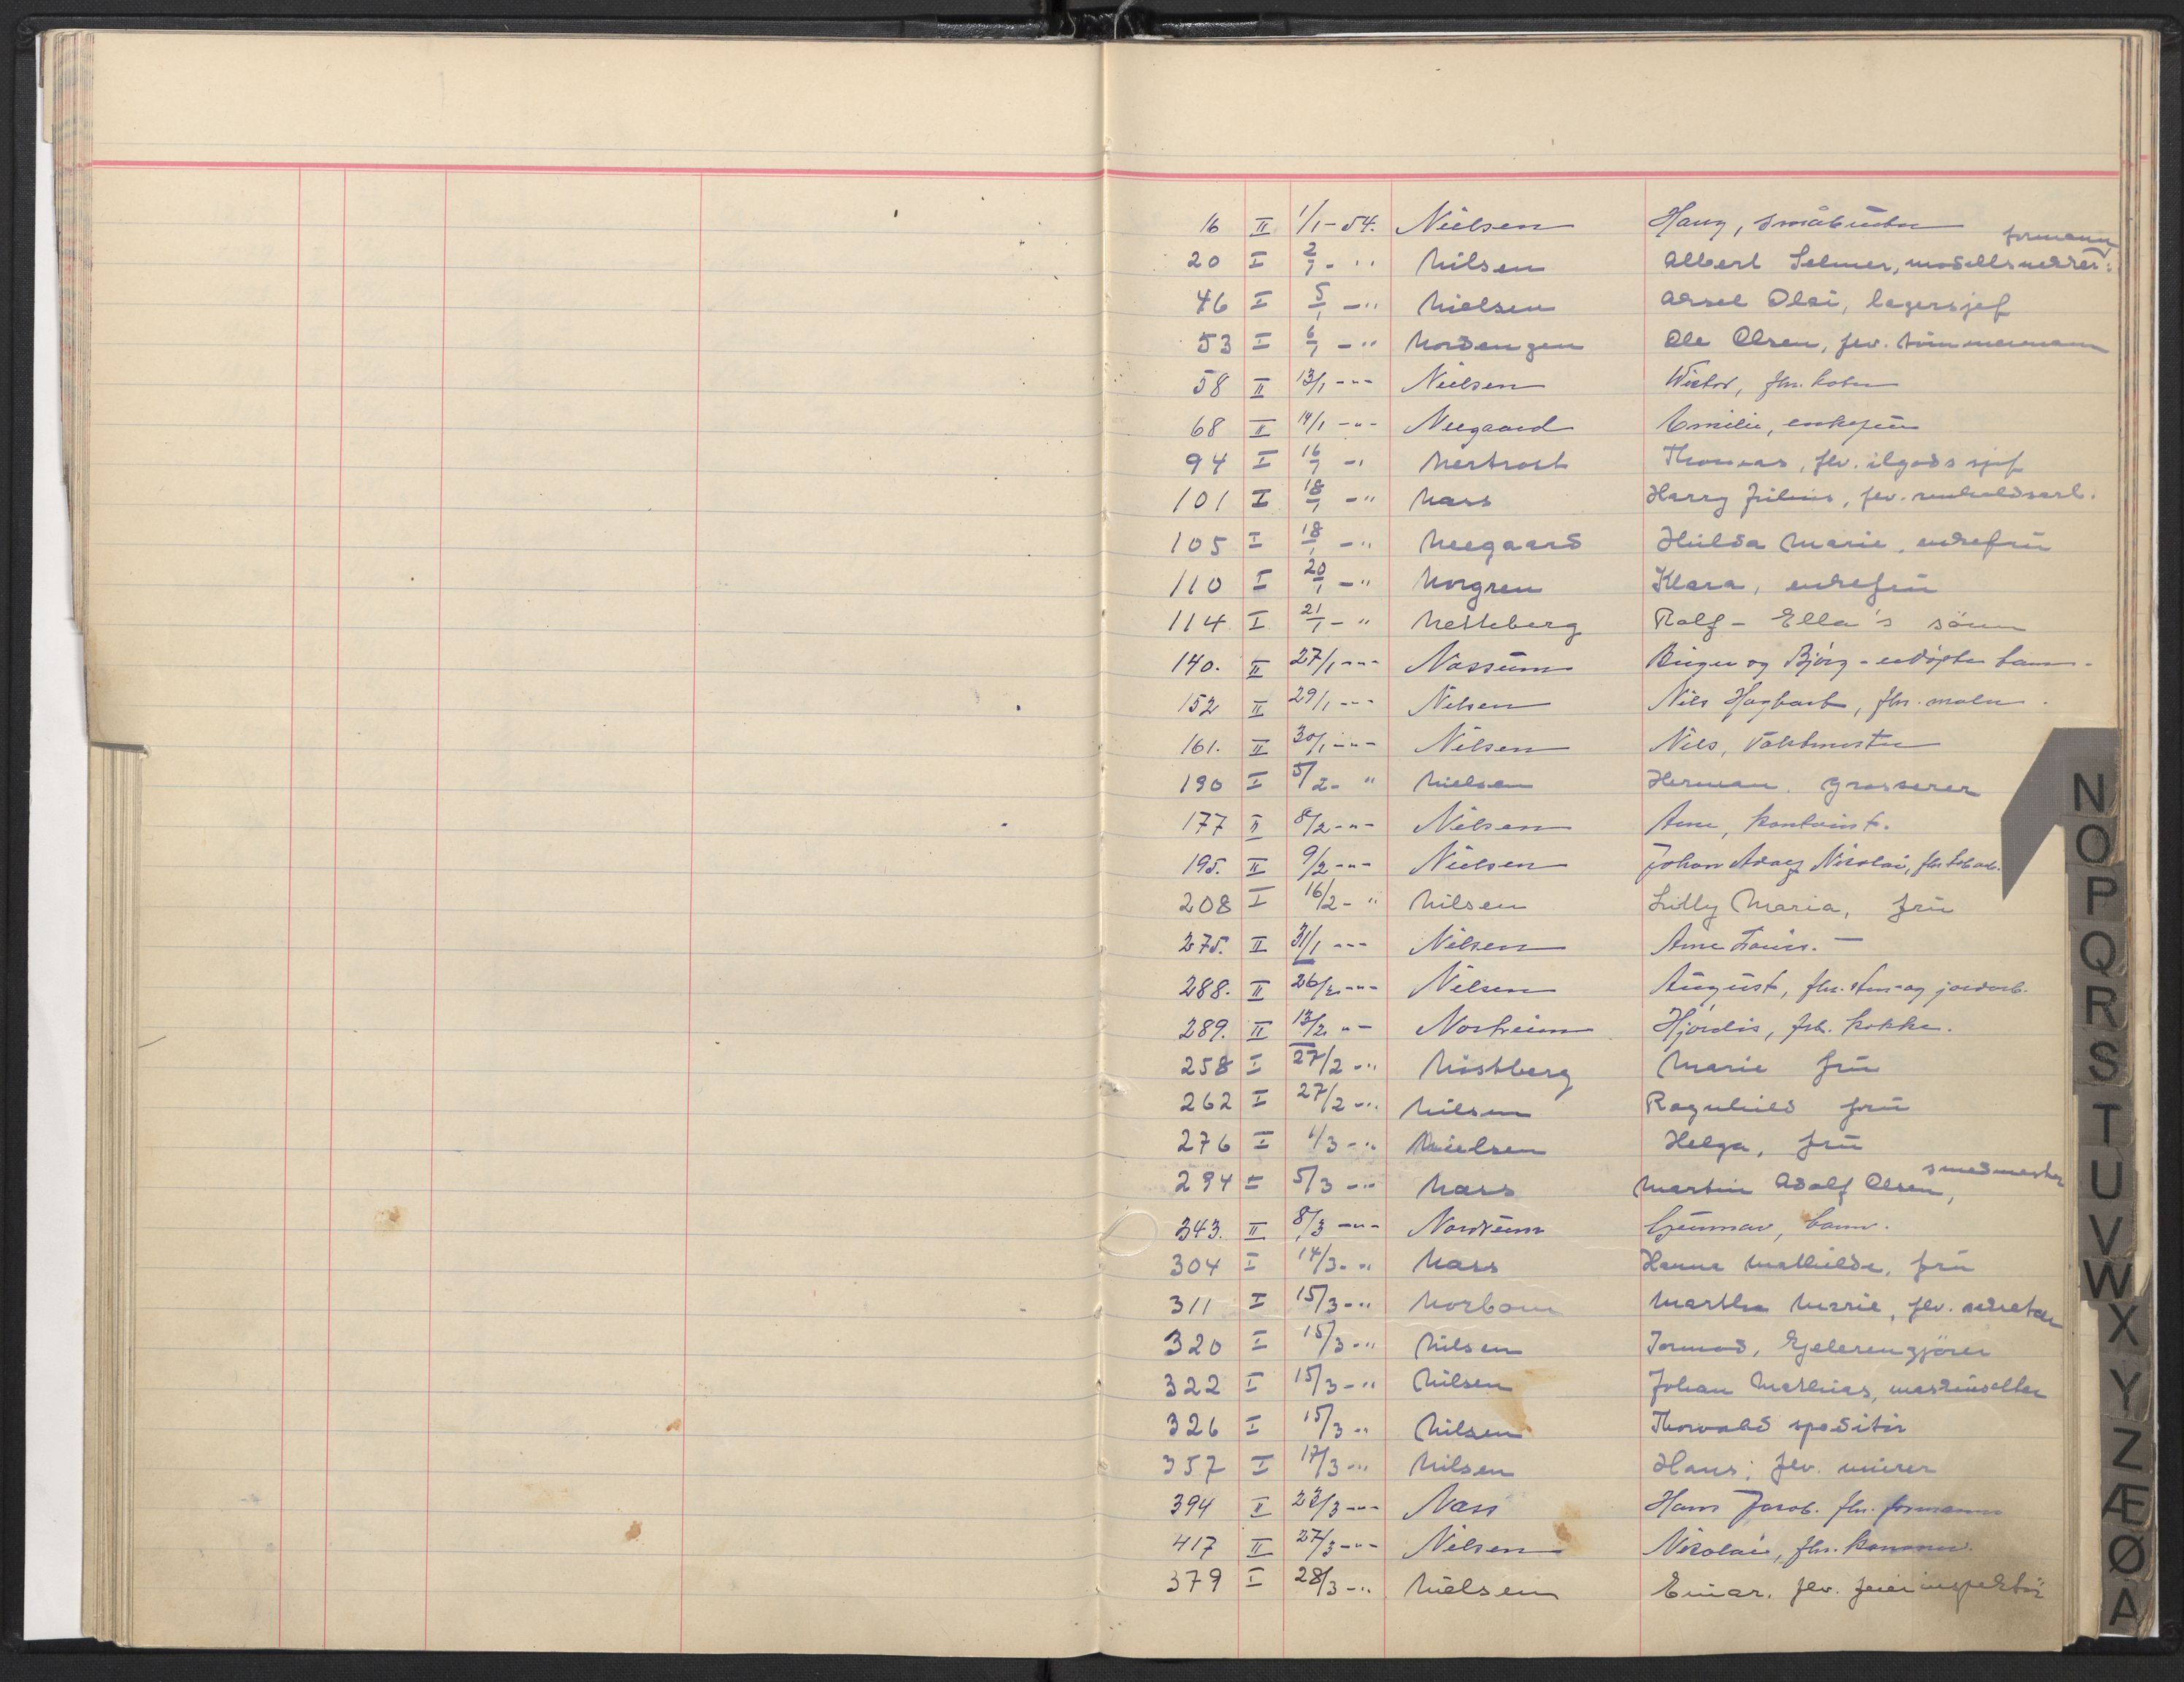 16 II 1/1-54. Nielsen Haug, småbruker
20 I 2/1 - " Nilsen Albert Selmer, modellsnekker: formann
46 I 5/1 - " Nielsen Aksel Olai, lagersjef
53 I 6/1 - " Nordengen Ole Olsen, fhv. tömmermann
58 II 13/1 -"- Nielsen Victor, fhv.
68 II 14/1 -"- Neegaard Emilie, enkefru
94 I 16/1 - " Thomas, fhv. ilgods sjef
101 I 18/1 - " Næss Harry Julius, fhv. renholdsarb.
105 I 18/1 - " Neegaard Hilda Marie, enkefru
110 I 20/1 - " Norgren Klara, enkefru
114 I 21/1 - " Netteberg Rolf - Ella's sönn
140. II 27/1 -"- Nassum Birger og Bjørg - udøpte barn.
152 II 29/1 -"- Nilsen Nils Hagbart, fhv. maler.
161. II 30/1 -"- Nilsen Nils, vaktmester
190 I 5/2 - " Nielsen Herman, grosserer
177 II 8/2 -"- Nilsen Arne, kontorist.
195. II 9/2 -"- Nielsen Johan Adolf Nikolai, fhv.
208 I 16/2 - " Nilsen Lilly Maria, fru
275. II 31/1 -"- Nilsen Arne Louis. -
288. II 26/2 -"- Nilsen August, fhv. sten- og jordarb.
289. II 13/2 "- Norheim Hjördis, fhv. kokke.
258 I 27/2 - " Nöstberg Marie fru
262 I 27/2 - " Nilsen Ragnhild fru
276 I 1/3 - " Nielsen Helga, fru
294 I 5/3 - " Næss Martin Adolf Olsen, smedmester
343. II 8/3 -"- Nordrum Gunnar, barn.
304 I 14/3 - " Næss Hanna Mathilde, fru
311 I 15/3 - " Norbom Martha Marie, fhv. sekretær
320 I 15/3 - " Nilsen Tormod,
322 I 15/3 - " Nilsen Johan Mathias, maskinsetter
326 I 15/3 - " Nilsen Thorvald speditör
357 I 17/3 - " Nilsen Hans; fhv. murer
394 II 23/3 -"- Næss Hans Jacob. fhv. formann
417 II 27/3 -"- Nilsen Nikolai, fhv.
379 I 28/3 - " Nielsen Einar. fhv. feierinspektör
N
O
P
Q
R
S
T
U
V
W
X
Y
Z
Æ
Ø
A